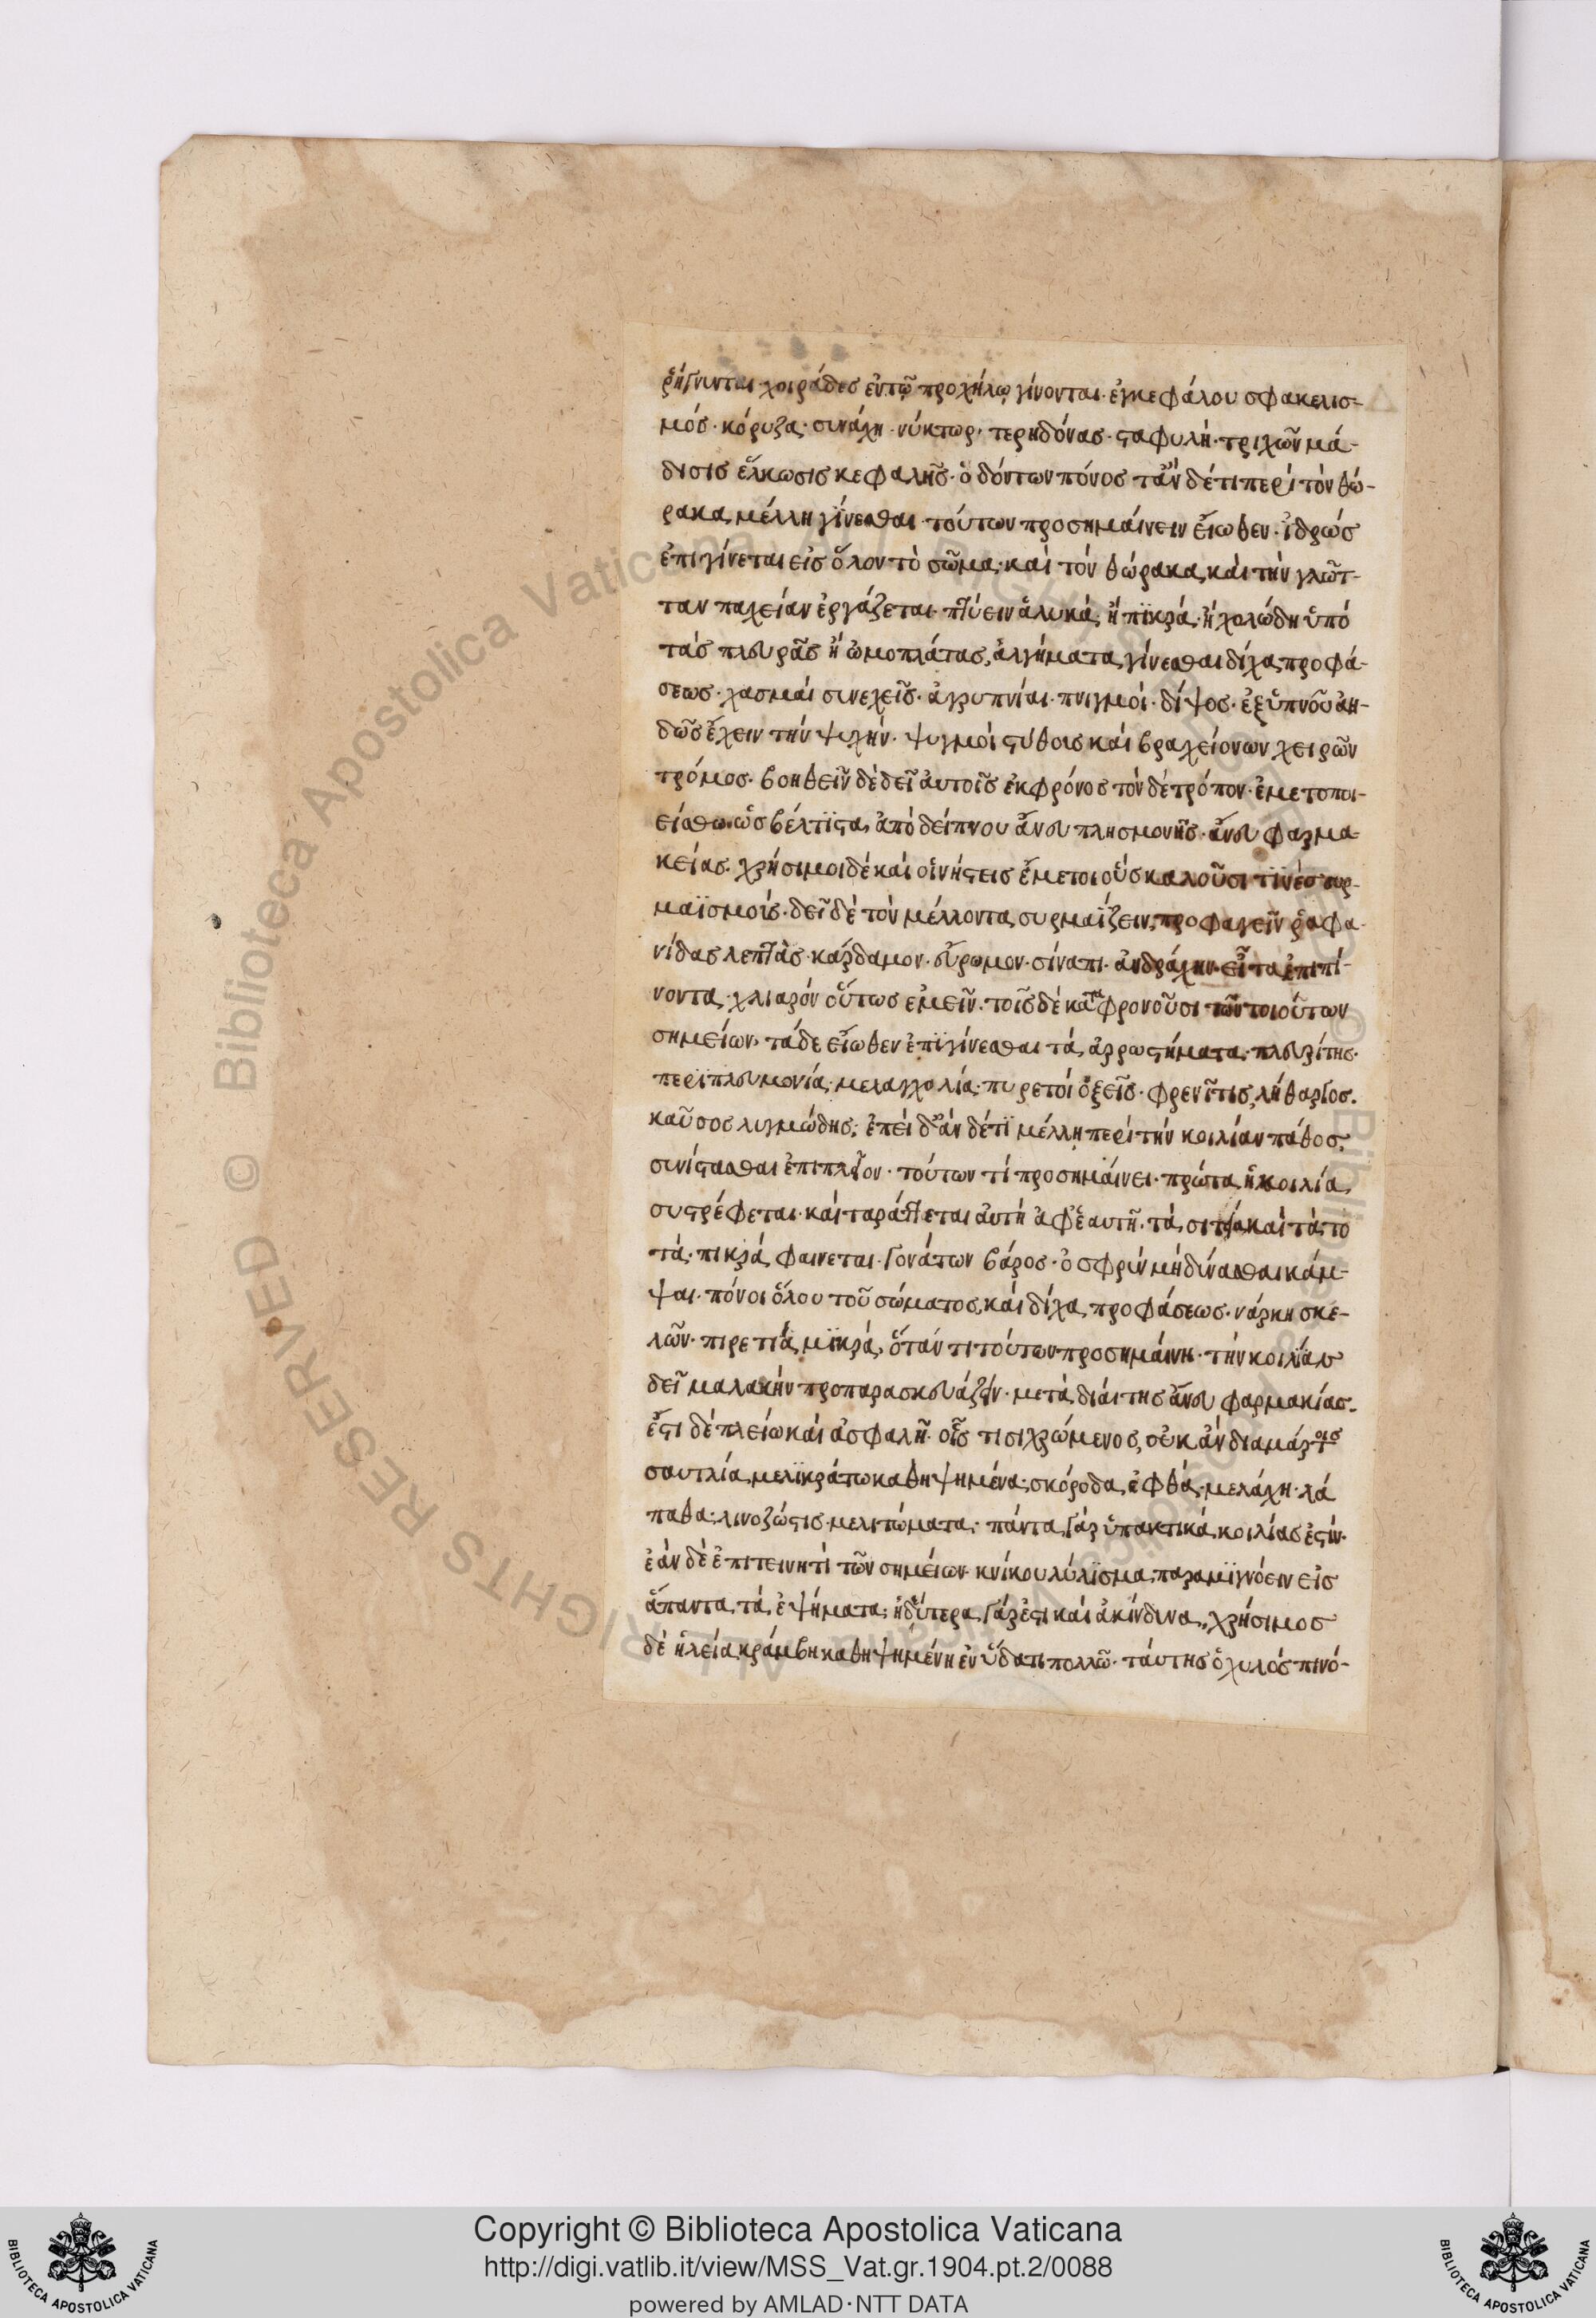 ῥήγνυνται· χοιράδες ἐν τῷ προχήλῳ γίνονται· ἐγκεφάλου σφακελισ-
μός· κόρυζα· συνάχη· νύκτωρ· τερηδόνας· σταφυλή· τριχῶν μά-
δισις ἕλκωσις κεφαλῆς· ὀδόντων πόνος τἂν δέ τι περί τὸν θώ-
ρακα μέλλη γίνεσθαι· τούτων προσημαίνειν εἴωθεν· ἱδρώς
ἐπιγίνεται εἰς ὅλον τὸ σῶμα· καί τόν θώρακα, καί τήν γλῶτ-
ταν παχείαν ἐργάζεται· πτύειν ἁλυκά· ἤ πϊκρά· ἤ χολώδη ὑπό
τάς πλευρᾶς ἤ ὠμοπλάτας, ἀλγήματα γίνεσθαι δίχα προφά-
σεως· χασμαί συνεχεῖς· ἀγρυπνίαι· πνιγμοί· δίψος· ἐξ ὕπνου ἀη-
δῶς ἔχειν τήν ψυχήν· ψυγμοί στύθοις καί βραχείονων χειρῶν
τρόμος· βοηθεῖν δὲ δεῖ αὐτοῖς ἐκφρόνος τόν δέ τρόπον· ἐμετοποι-
είσθω ὡς βέλτϊστα ἀπό δείπνου ἄνευ πλησμονῆς· ἄνευ φαρμα-
κείας· χρήσιμοι δέ καί οἱ νήστεις ἔμετοι οὕς καλοῦσι τϊνές συρ-
μαϊσμοίς· δεῖ δέ τόν μέλλοντα συρμαΐζειν, προφαγεῖν ῥαφα-
νίδας λεπτάς· κάρδαμον· εὔρωμον· σίναπι· ἀνδράχην· εἶτα ἐπιπί-
νοντα χλιαρόν οὕτως ἐμεῖν· τοῖς δέ καταφρονοῦσι τῶν τοιούτων
σημείων· τάδε εἴωθεν ἐπϊγίνεσθαι τά ἀρρωστήματα· πλευρίτης·
περϊπλευμονία· μελαγχολία· πυρετοί ὀξεῖς· φρενῖτις, λήθαργος·
καῦσος λυγμώδης· ἐπεί δ' ἄν δέ τϊ μέλλη περί τήν κοιλίαν πάθος
συνίστασθαι ἐπιπλεῖον· τούτων τί προσημαίνει· πρώτα ἡ κοιλία
συστρέφεται· καί ταράττεται αὐτή ἀφ' ἑαυτῆ· τά σιτία καί τά πο
τά· πικρά φαινεται· γονάτων βάρος· ὀσφρύν μή δύνασθαι κάμ-
ψαι· πόνοι ὅλου τοῦ σώματος, καί δίχα προφάσεως· νάρκη σκε-
λῶν· πιρετιά μϊκρά· ὅταν τι τούτων προσημαίνη· τήν κοιλίαν
δεῖ μαλακήν προπαρασκευάζειν· μετά διαίτης ἄνευ φαρμακίας·
ἔστι δέ πλείω καί ἀσφαλῆ· οἷς τισι χρώμενος, οὐκ ἄν διαμάρτοις
σαυτλία μελϊκράτω καθηψημένα· σκόροδα ἐφθά· μελάχη· λά
παθα· λινοζώστις· μελιτώματα· πάντα γάρ ὑπακτικά κοιλίας ἐστίν·
ἐάν δέ ἐπιτεινητί τῶν σημείων κνίκου λύλϊσμα, παραμϊγνύειν εἰς
ἅπαντα τά ἑψήματα· ἡδύτερα γάρ ἐστι καί ἀκίνδυνα, χρήσιμος
δέ ἡ λεία κράμβη καθηψημένη ἐν ὕδατι πολλῶ· ταύτης ὁ χυλός πινό-
Copyright © Biblioteca Apostolica Vaticana
http://digi.vatlib.it/view/MSS_Vat.gr.1904.pt.2/0088
powered by AMLAD·NTT DATA
BIBLIOTECA APOSTOLICA VATICANA
BIBLIOTECA APOSTOLICA VATICANA
© Biblioteca Apostolica Vaticana ALL RIGHTS RESERVED